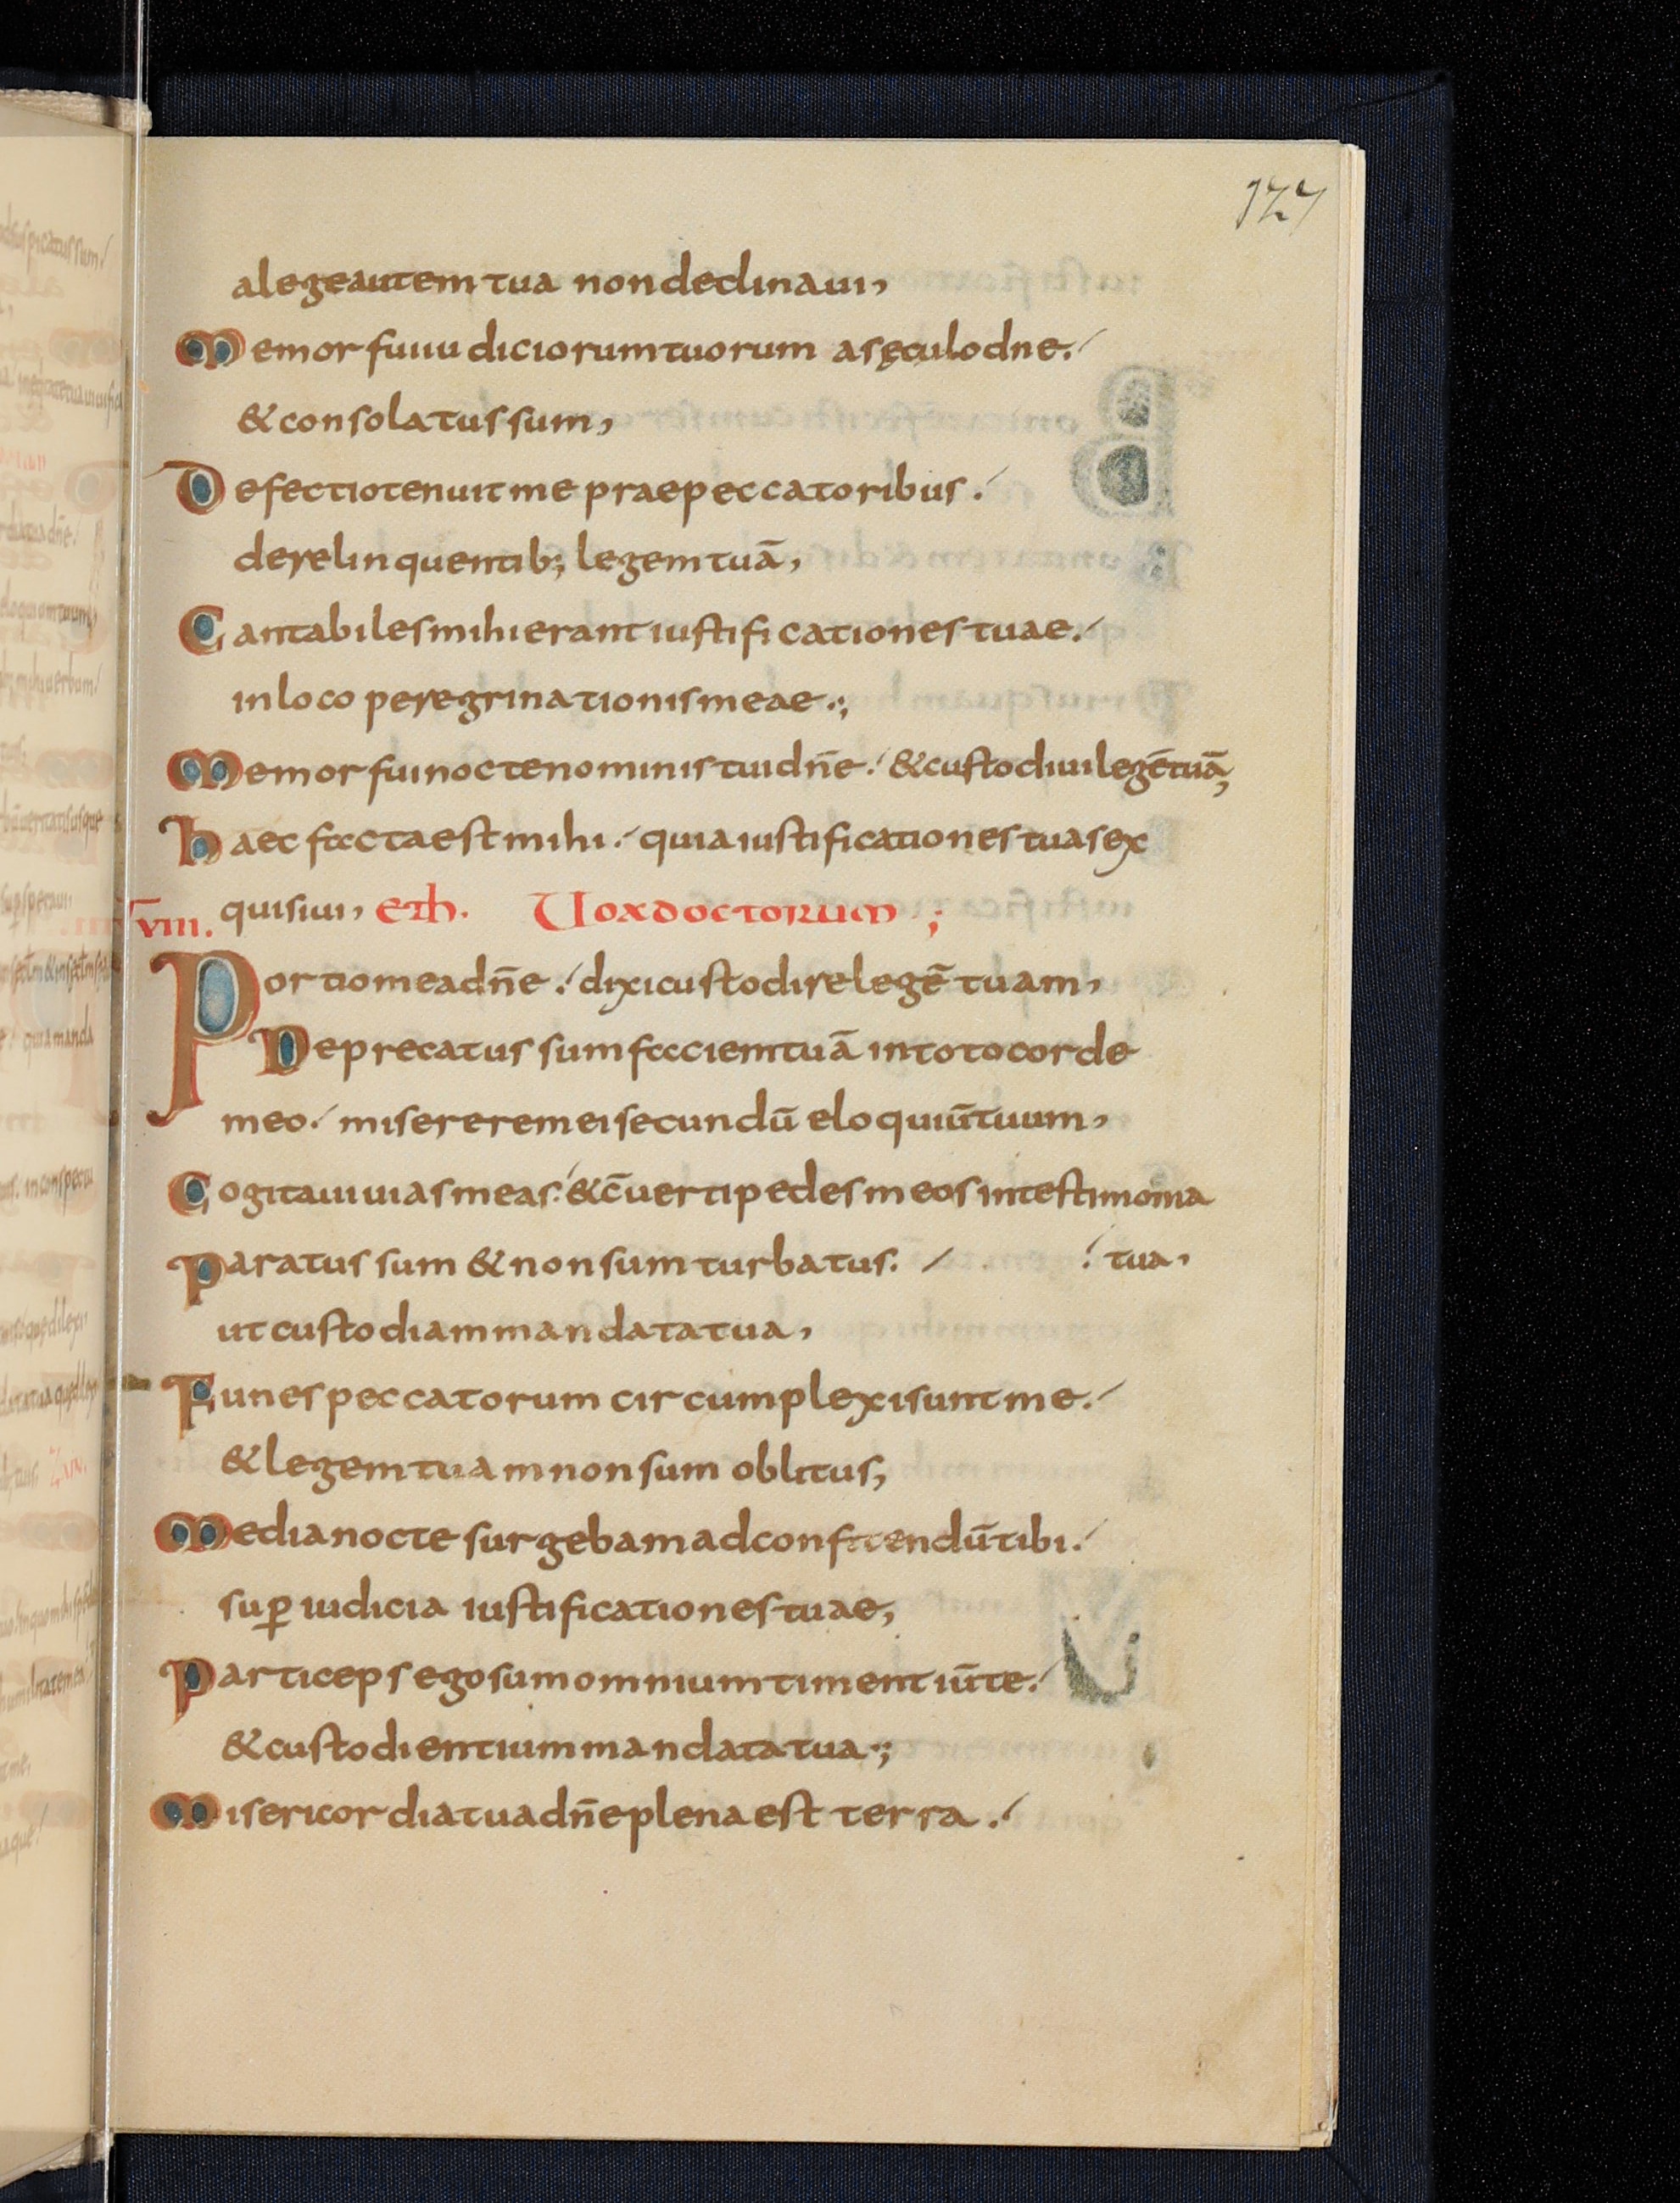 127
a lege autem tua non declinaui,
Memor fui iudiciorum tuorum a sęculo dne.
& consolatus sum,
Defectio tenuit me prae peccatoribus.
derelinquentib; legem tuā,
Cantabiles mihi erant iustificationes tuae.
in loco peregrinationis meae.;
Memor fui nocte nominis tui dn̄e. & custodiui legē tuā,
Haec facta est mihi. quia iustificationes tuas ex
quisiui, eth. Uox doctorum ;
VIII.
Portio mea dn̄e. dixi custodire legē tuam,
Deprecatus sum faciem tuā in toto corde
meo. miserere mei secundū eloquiū tuum,
Cogitaui uias meas. & c̄uerti pedes meos in testimonia
tua,
Paratus sum & non sum turbatus.
ut custodiam mandata tua,
Funes peccatorum circumplexi sunt me.
& legem tuam non sum oblitus,
Media nocte surgebam ad confitendū tibi.
sup̱ iudicia iustificationes tuae,
Particeps ego sum omnium timentiū te.
& custodientium mandata tua.;
Misericordia tua dn̄e plena est terra.